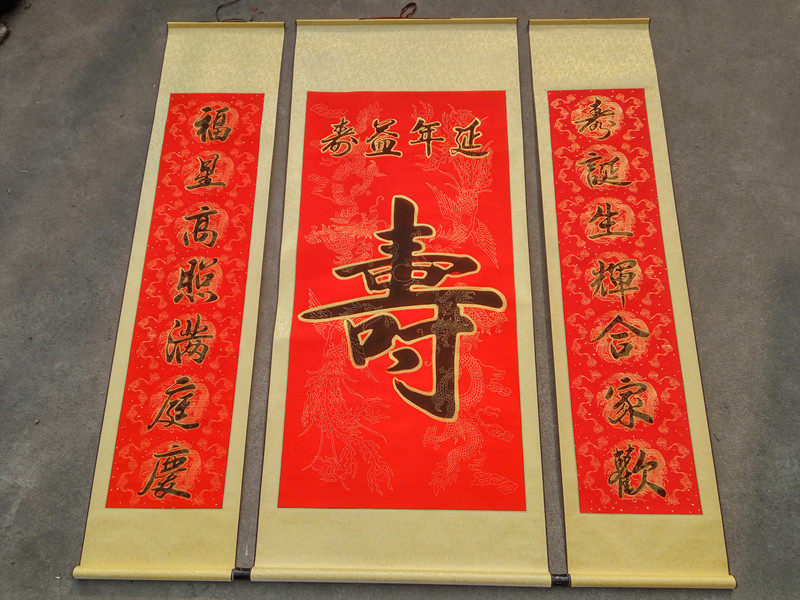 延年益寿
壽
寿誕生輝合家歡
福星高照满庭慶